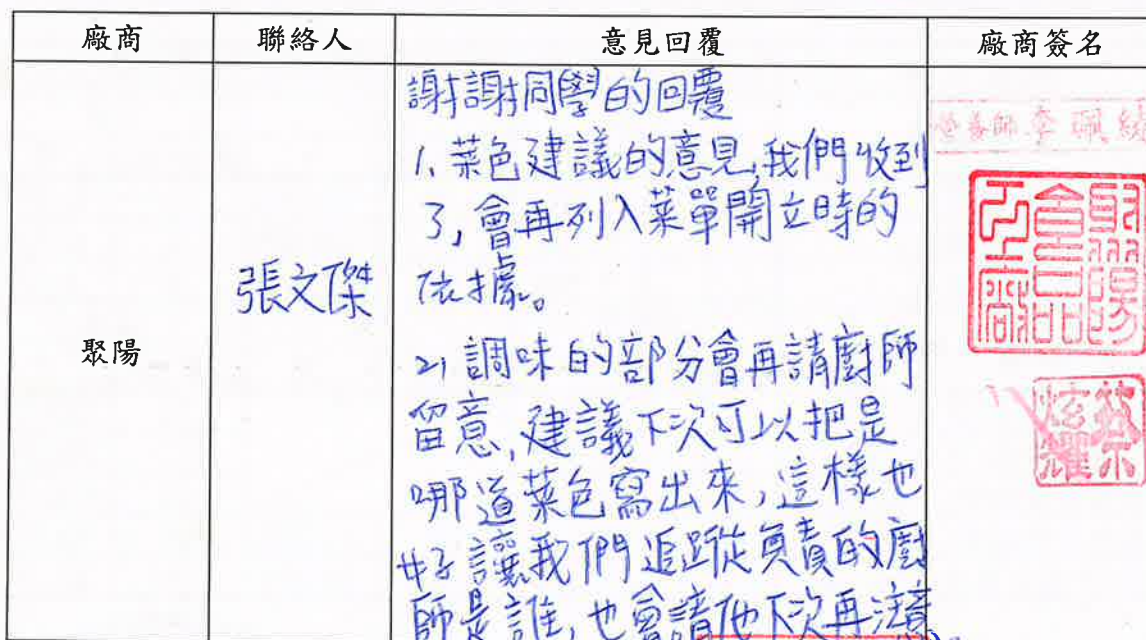 廠商 聯絡人 意見回覆 廠商簽名
聚陽
張文傑
謝謝同學的回覆
1、菜色建議的意見,我們收到
了,會再列入菜單開立時的
依據。
2、調味的部分會再請廚師
留意,建議下次可以把是
哪道菜色寫出來,這樣也
好讓我們追蹤負責的廚
師是誰,也會請他下次再注意。
聚陽
食品
工廠
蔡
炫耀